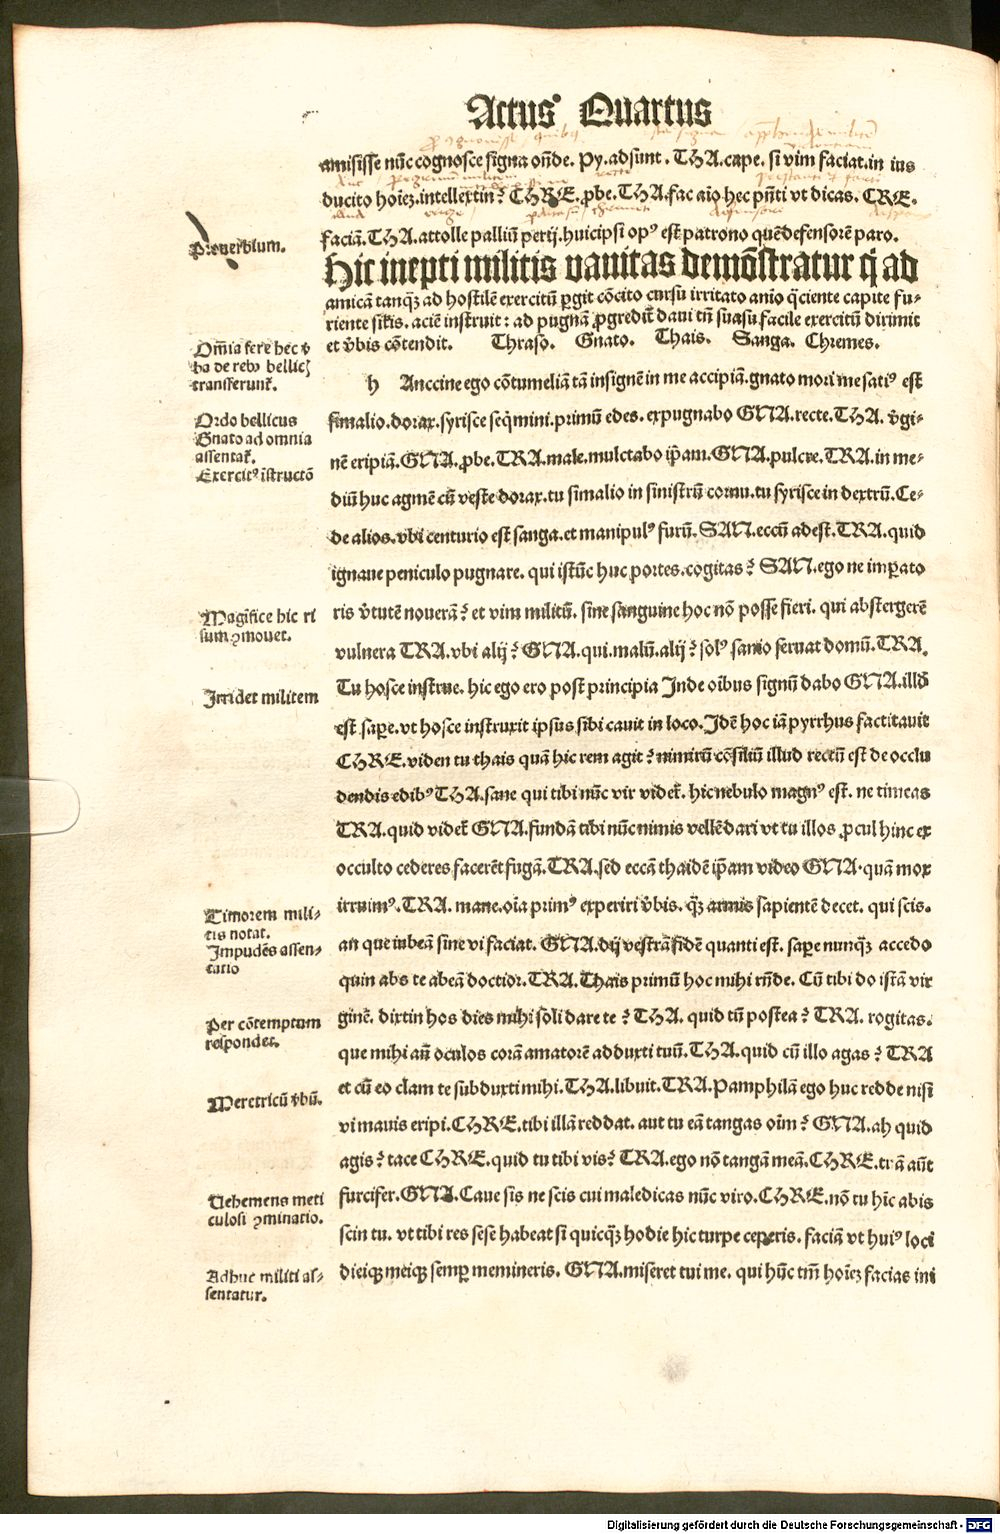 Actus Quartus
amisisse nūc cognosce signa onde. Py. adsunt. THA. cape. si vim faciat. in ius
ducito hoīez. intellextin? CHRE. ꝓbe. THA. fac aio hec pn̄ti vt dicas. CRE.
faciā. THA. attolle palliū perij. huicipsi opꝰ est patrono quē defensorē paro.
Prouerbium.
Hic inepti militis vanitas demōstratur q̄ ad
amicā tanqꝫ ad hostilē exercitū ꝑgit cōcito cursu irritato anīo q̄ciente capite fu-
riente silis. aciē instruit: ad pugnā ꝓgredit̄ daui tn̄ suasu facile exercitū dirimit
et v̄bis cōtendit. Thraso. Gnato. Thais. Sanga. Chremes.
Om̄ia fere hec v̄
ba de rebꝰ bellicꝭ
transferunt̄.
h Anccine ego cōtumeliā tā insignē in me accipiā. gnato mori me satiꝰ est
Ordo bellicus
Gnato ad omnia
assentat̄.
Exercitꝰ īstructō
simalio. dorax. syrisce seq̄mini. primū edes. expugnabo GNA. recte. THA. v̄gi-
nē eripiā. GNA. ꝓbe. TRA. male. mulctabo ip̄am. GNA. pulcre. TRA. in me-
diū huc agmē cū veste dorax. tu simalio in sinistrū cornu. tu syrisce in dextrū. Ce-
de alios. vbi centurio est sanga. et manipulꝰ furū. SAN. eccū adest. TRA. quid
ignaue peniculo pugnare. qui istūc huc portes. cogitas? SAN. ego ne imꝑato
Magīfice hic ri
sum ꝯmouet.
ris v̄tutē nouerā? et vim militū. sine sanguine hoc nō posse fieri. qui abstergerē
vulnera TRA. vbi alij? GNA. qui. malū. alij? solꝰ sanio seruat domū. TRA.
Irridet militem
Tu hosce instrue. hic ego ero post principia Inde oībus signū dabo GNA. illd̄
est saꝑe. vt hosce instruxit ipsus sibi cauit in loco. Idē hoc iā pyrrhus factitauit
CHRE. viden tu thais quā hic rem agit? nimirū cōsiliū illud rectū est de occlu
dendis edibꝰ THA. sane qui tibi nūc vir videt̄. hic nebulo magnꝰ est. ne timeas
TRA. quid videt̄ GNA. fundā tibi nūc nimis vellē dari vt tu illos ꝓcul hinc ex
occulto cederes facerēt fugā. TRA. sed eccā thaidē ip̄am video GNA. quā mox
Timorem mili-
tis notat.
Impudēs assen-
tatio
irruimꝰ. TRA. mane. oīa primꝰ experiri v̄bis. qꝫ armis sapientē decet. qui scis.
an que iubeā sine vi faciat. GNA. dij vestrā fidē quanti est. saꝑe nunqꝫ accedo
quin abs te abeā doctior. TRA. Thais primū hoc mihi rn̄de. Cū tibi do istā vir
Per cōtemptum
respondet.
ginē. dixtin hos dies mihi soli dare te? THA. quid tū postea? TRA. rogitas.
que mihi an̄ oculos corā amatorē adduxti tuū. THA. quid cū illo agas? TRA
Meretricū v̄bū.
et cū eo clam te subduxti mihi. THA. libuit. TRA. Pamphilā ego huc redde nisi
vi mauis eripi. CHRE. tibi illā reddat. aut tu eā tangas oīm? GNA. ah quid
agis? tace CHRE. quid tu tibi vis? TRA. ego nō tangā meā. CHRE. tuā aūt
Uehemens meti
culosi ꝯminatio.
furcifer. GNA. Caue sis ne scis cui maledicas nūc viro. CHRE. nō tu hīc abis
scin tu. vt tibi res sese habeat si quicqꝫ hodie hic turpe ceperis. faciā vt huiꝰ loci
Adhuc militi as-
sentatur.
dieiqꝫ meiqꝫ semꝑ memineris. GNA. miseret tui me. qui hūc tm̄ hoīez facias ini
Digitalisierung gefördert durch die Deutsche Forschungsgemeinschaft - DFG